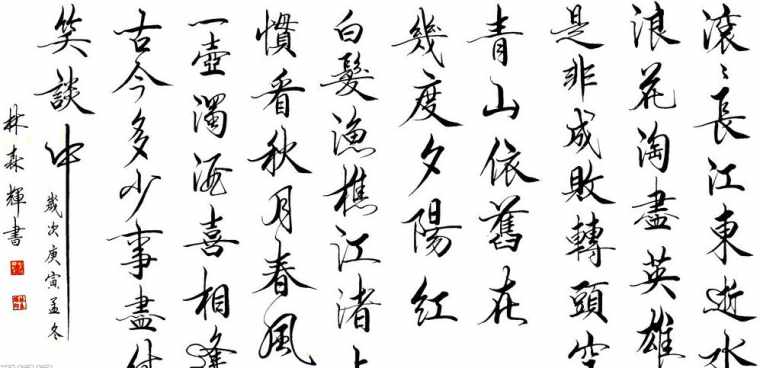 滾〻長江東逝水
浪花淘盡英雄
是非成敗轉頭空
青山依舊在
幾度夕陽紅
白髮漁樵江渚上
慣看秋月春風
一壺濁酒喜相逢
古今多少事盡付
笑談中
歲次庚寅孟冬
林森輝書